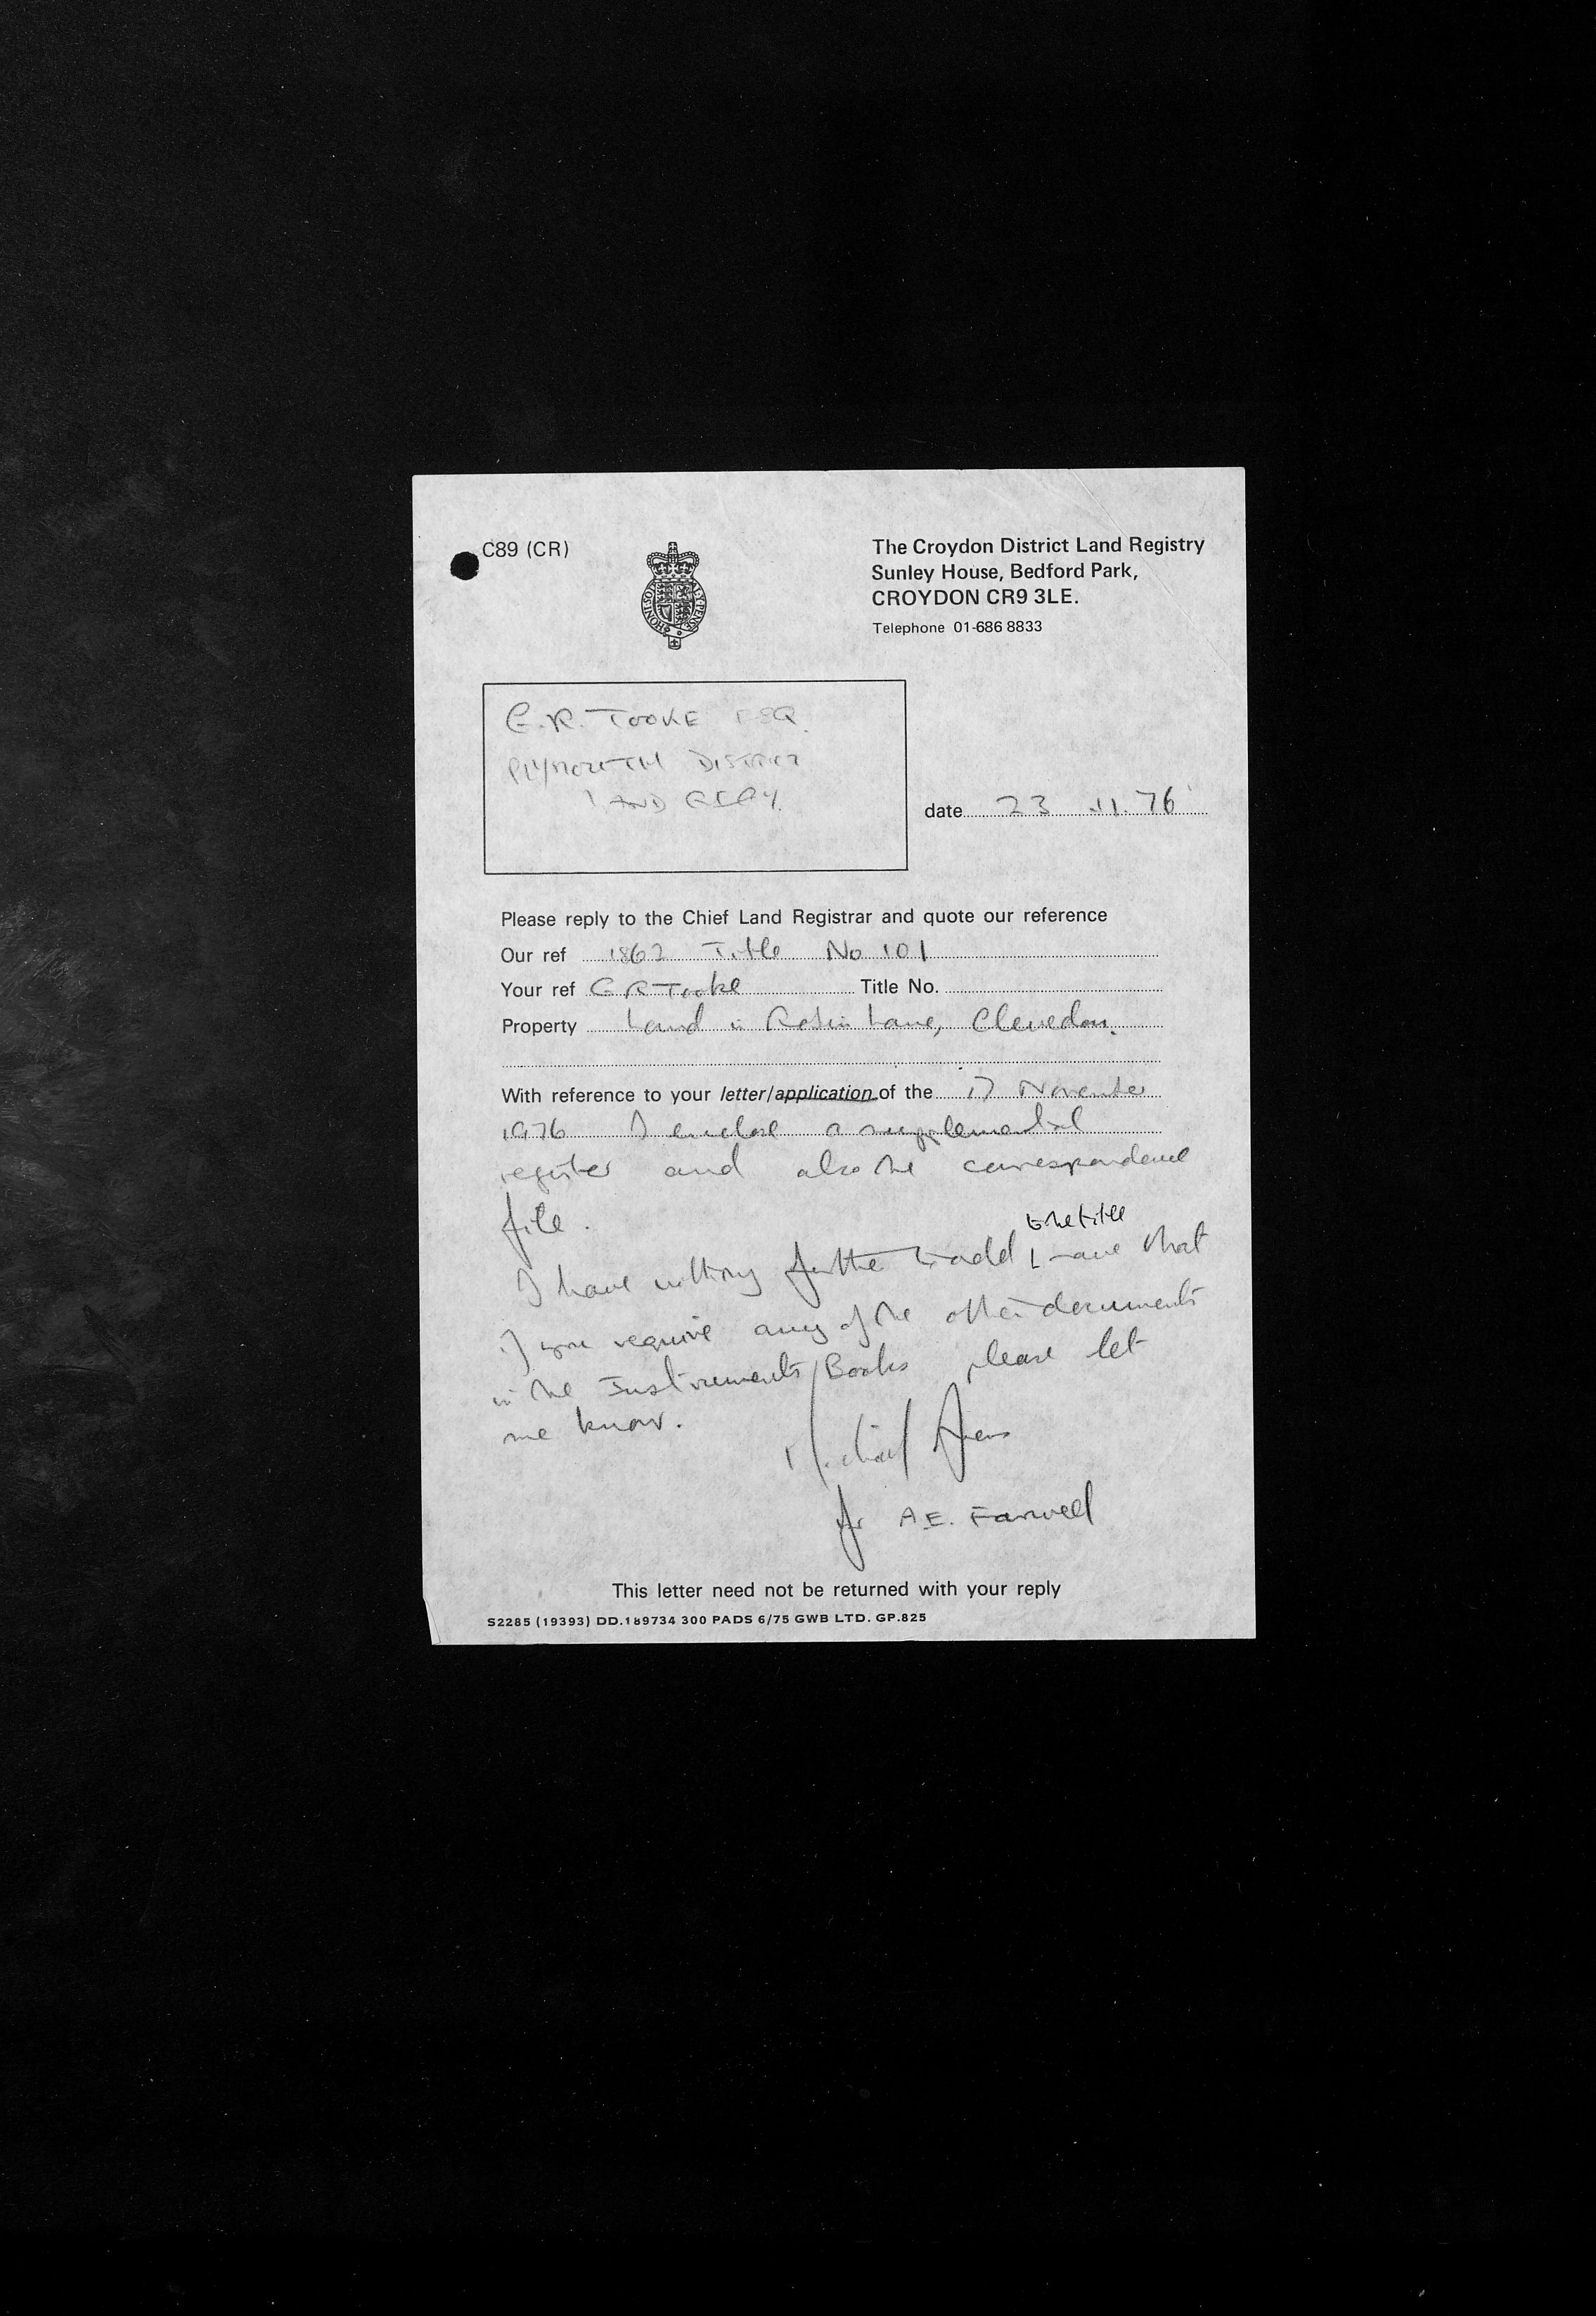 C89 (CR)
The Croydon District Land Registry
Sunley House, Bedford Park,
CROYDON CR9 3LE.
Telephone 01-686 8833
G.R. TOOKE ESQ.
PLYMOUTH DISTRICT
LAND REGY.
date 23.11.76
Please reply to the Chief Land Registrar and quote our reference
Our ref 1862 Title No 101
Your ref G R Tooke Title No.
Property Land in Lane, Clevedon.
With reference to your letter/application of the 17 November
1976 I enclose a supplemental
register and also the correspondence
file.
to the title
I have nothing further to add save that
if you require any of the other documents
in the Instruments Books please let
me know.
Michael
for A.E. Farwell
This letter need not be returned with your reply
S2285 (19393) DD.189734 300 PADS 6/75 GWB LTD. GP.825